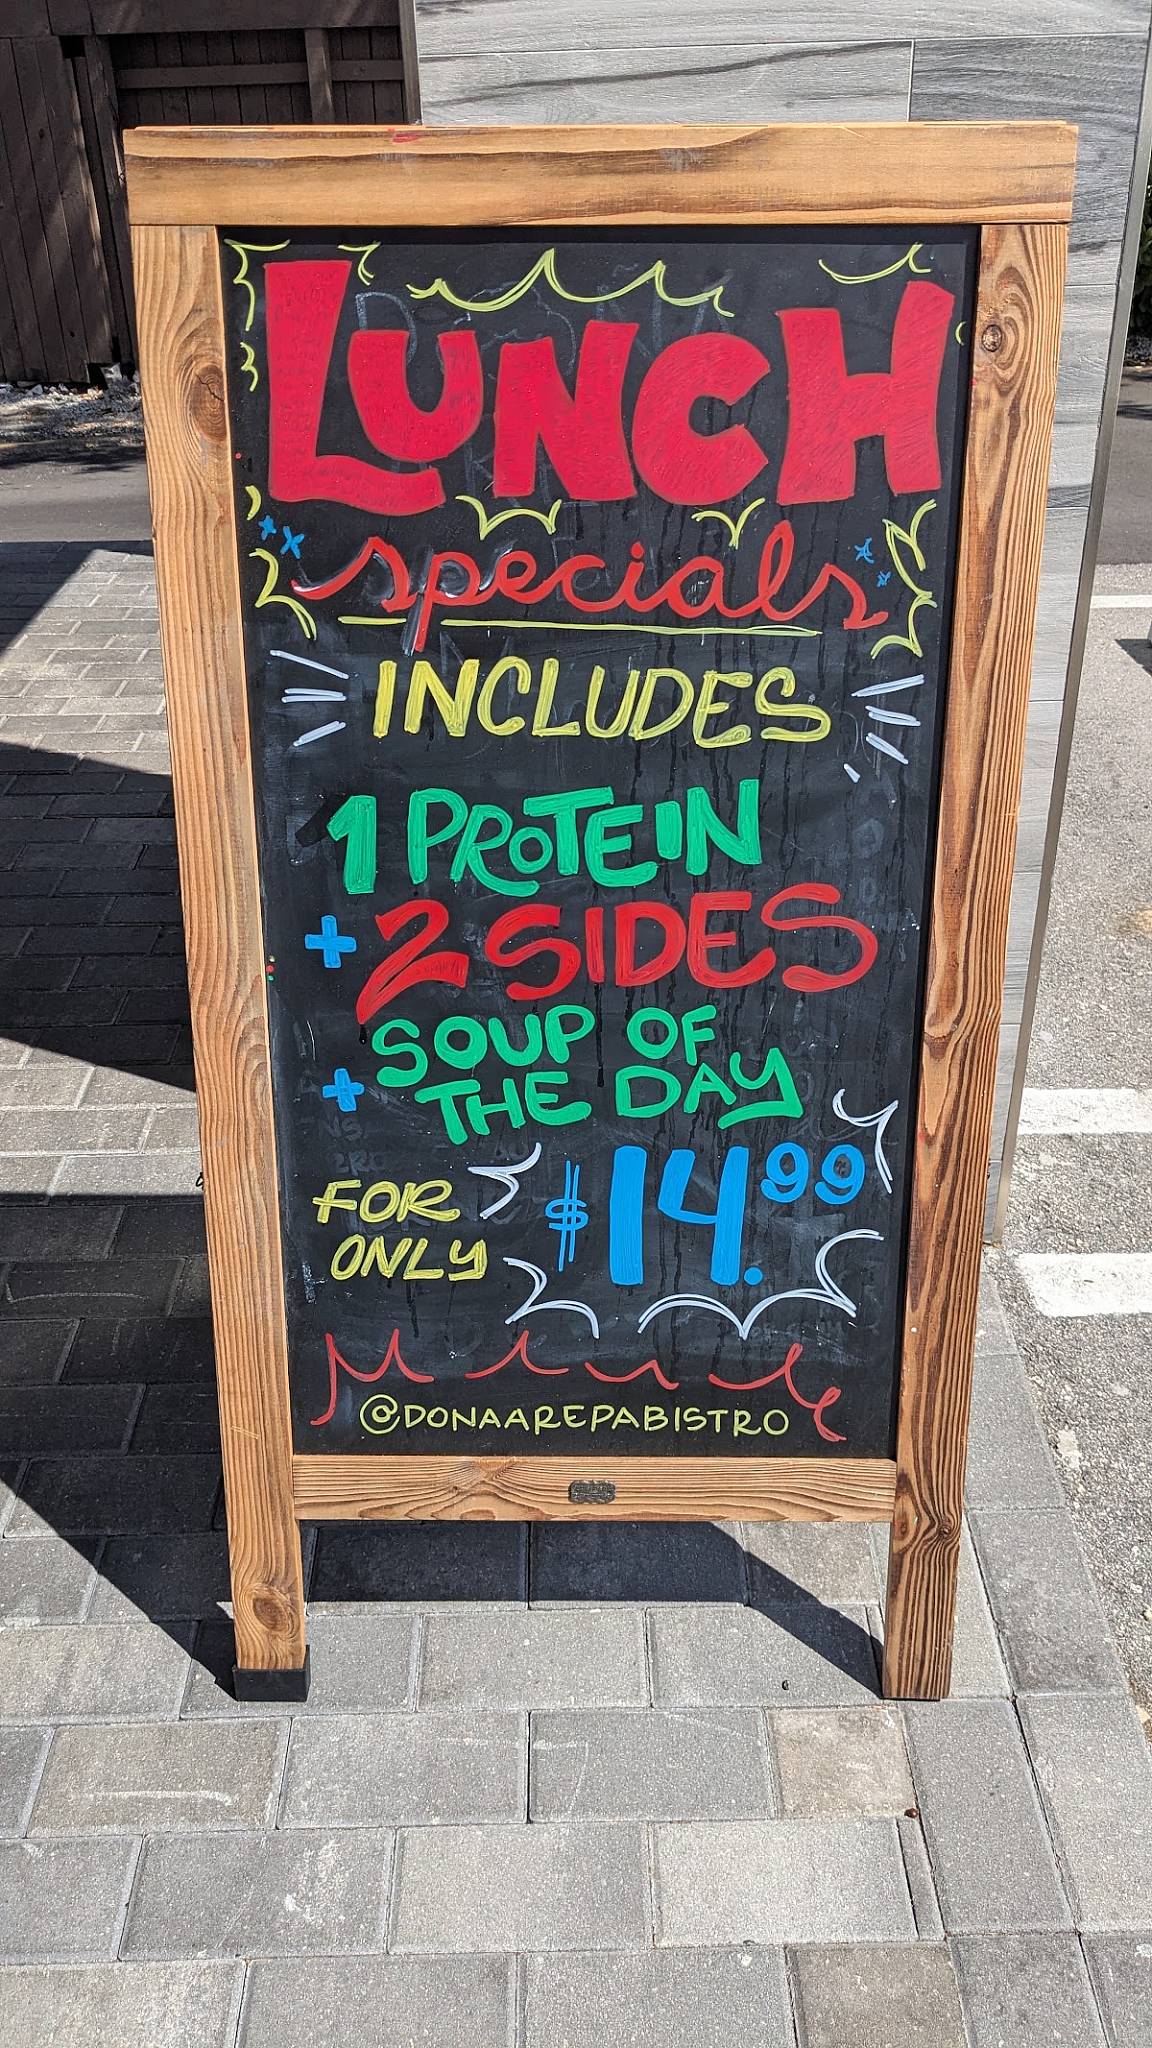 LUNCH
specials
INCLUDES
1 PROTEIN
+ 2 SIDES
SOUP OF
+ THE DAY
FOR $14.99
ONLY
@DONAAREPABISTRO